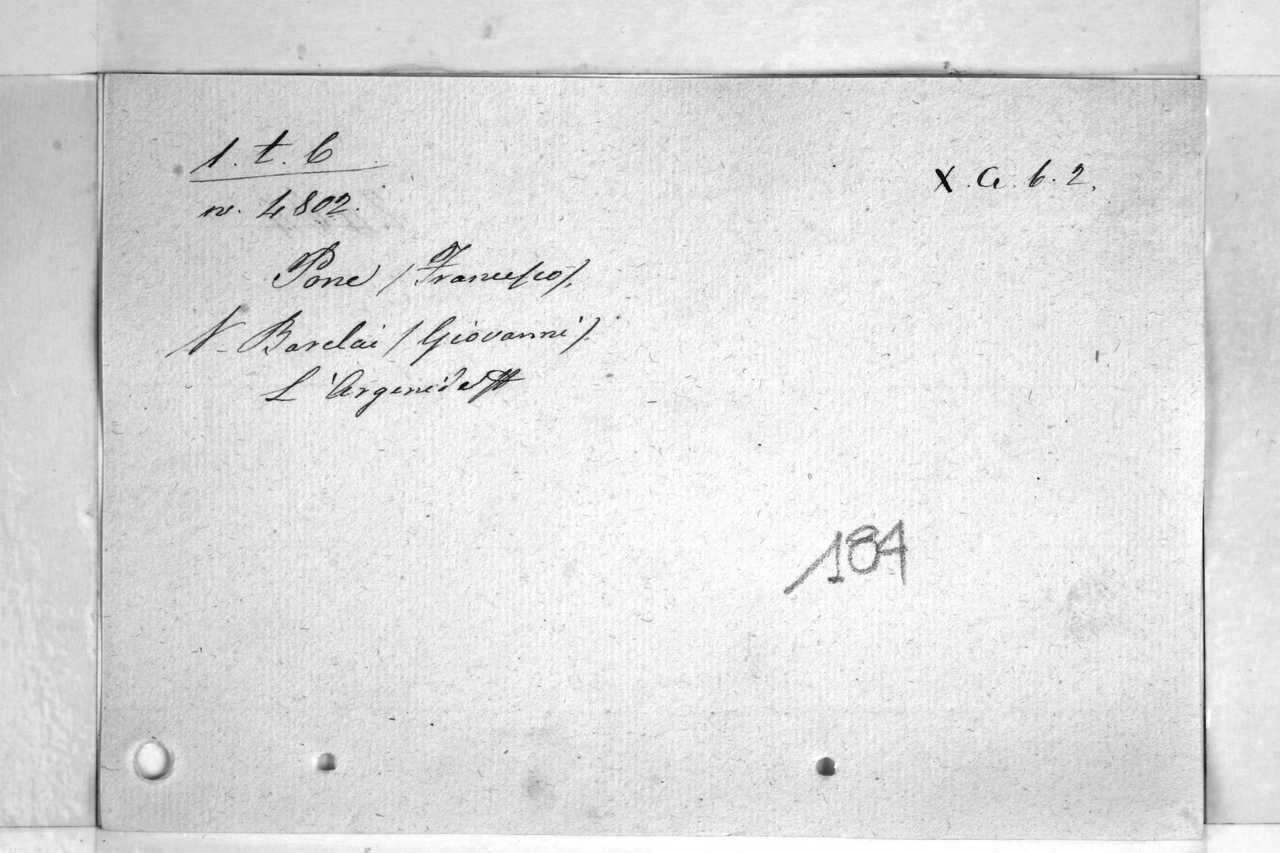 1. t. 6
X. G. b. 2.
n. 4802.
Pone /Francesco/.
V. Barclai /Giovanni/.
L'Argenide
184